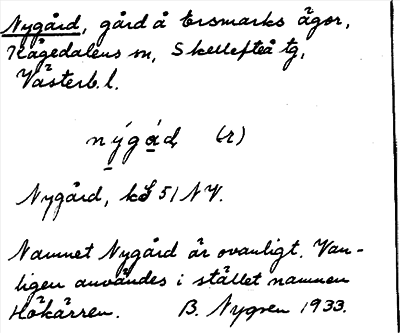 Nygård, gård å Ersmarks ägor,
Kågedalens sn, Skellefteå tg,
Västerb. l.
nýgård (r)
Nygård, kbl 51 NV.
Namnet Nygård är ovanligt. Van-
ligen användes i stället namnen
Hökärren. B. Nygren 1933.